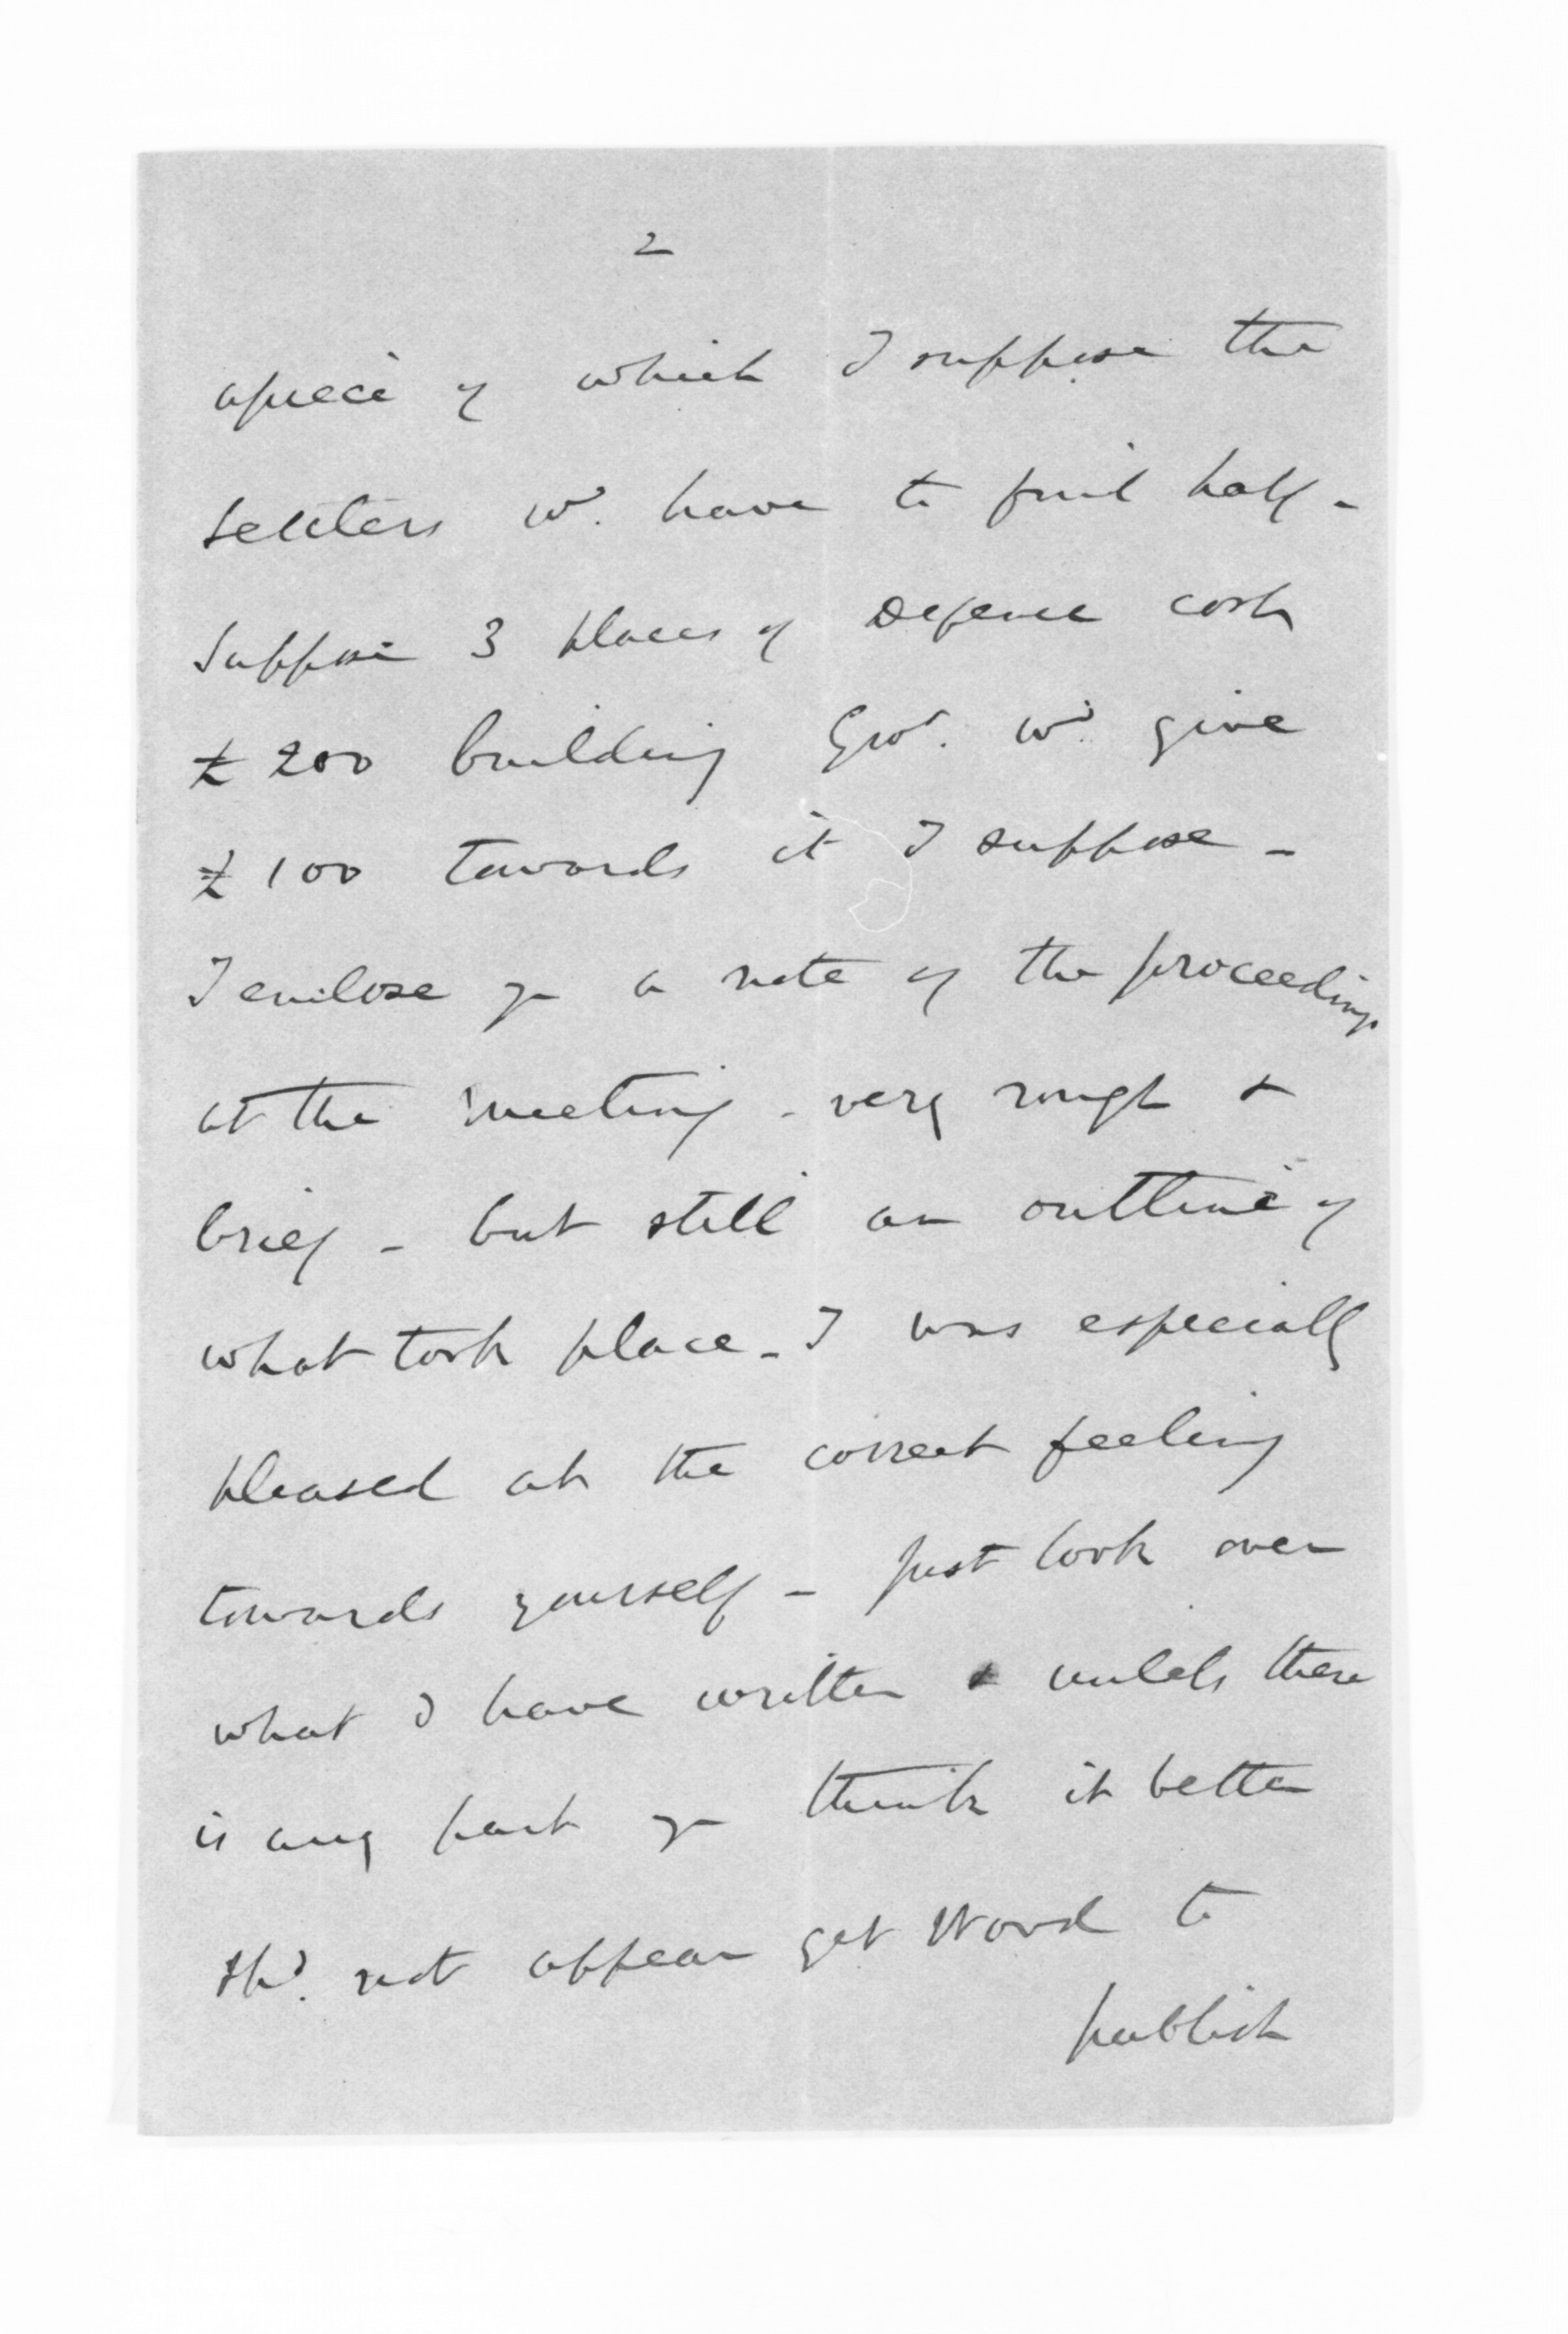 2
apiece of which I suppose the
settlers wd. have to find half -
Suppose 3 places of Defence cost
£200 building Govt. wd. give
£100 towards it I suppose -
I enclose yr a note of the proceedings
at the meeting - very rough &
brief - but still an outline of
what took place - I was especially
pleased at the correct feeling
towards yourself - just look over
what I have written & unless there
is any part yu think it better
shd. not appear get Wood to
publish